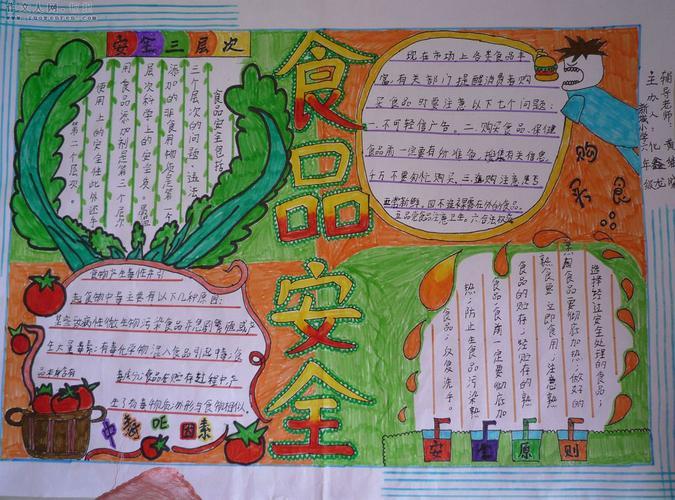 食品安全
安全三层次
食品安全包括
三个层次的问题:违法
添加的非食用物质是第一个
层次科学上的安全及
用食品添加剂是第三个层次
使用上的安全性
第二个层次。
现在市场上各类食品丰
富,有关部门提醒消费者购
买食品时要注意以下七个问题:
一.不可轻信广告。二.购买食品、保健
食品前一定要有所准备,搜集有关信息,
千万不要匆忙购买。三.选购注意
购买食品
主办人:
辅导老师:
食物产生毒性并引
起食物中毒主要有以下几种原因:
某些致病性微生物污染食品并急剧繁殖或产
生大量毒素;有毒化学物混入食品引起中毒;食
品本身含有
毒成分;食品在贮存过程中产
生了有毒物质;外形与食物相似
中毒因素
选择经过安全处理的食品;
烹调食品要彻底加热;做好的
熟食要立即食用;注意熟
食品的贮存;经贮存的熟
食品,食前一定要彻底加
热;防止生食品污染熟
食品;反复洗手。
安全原则